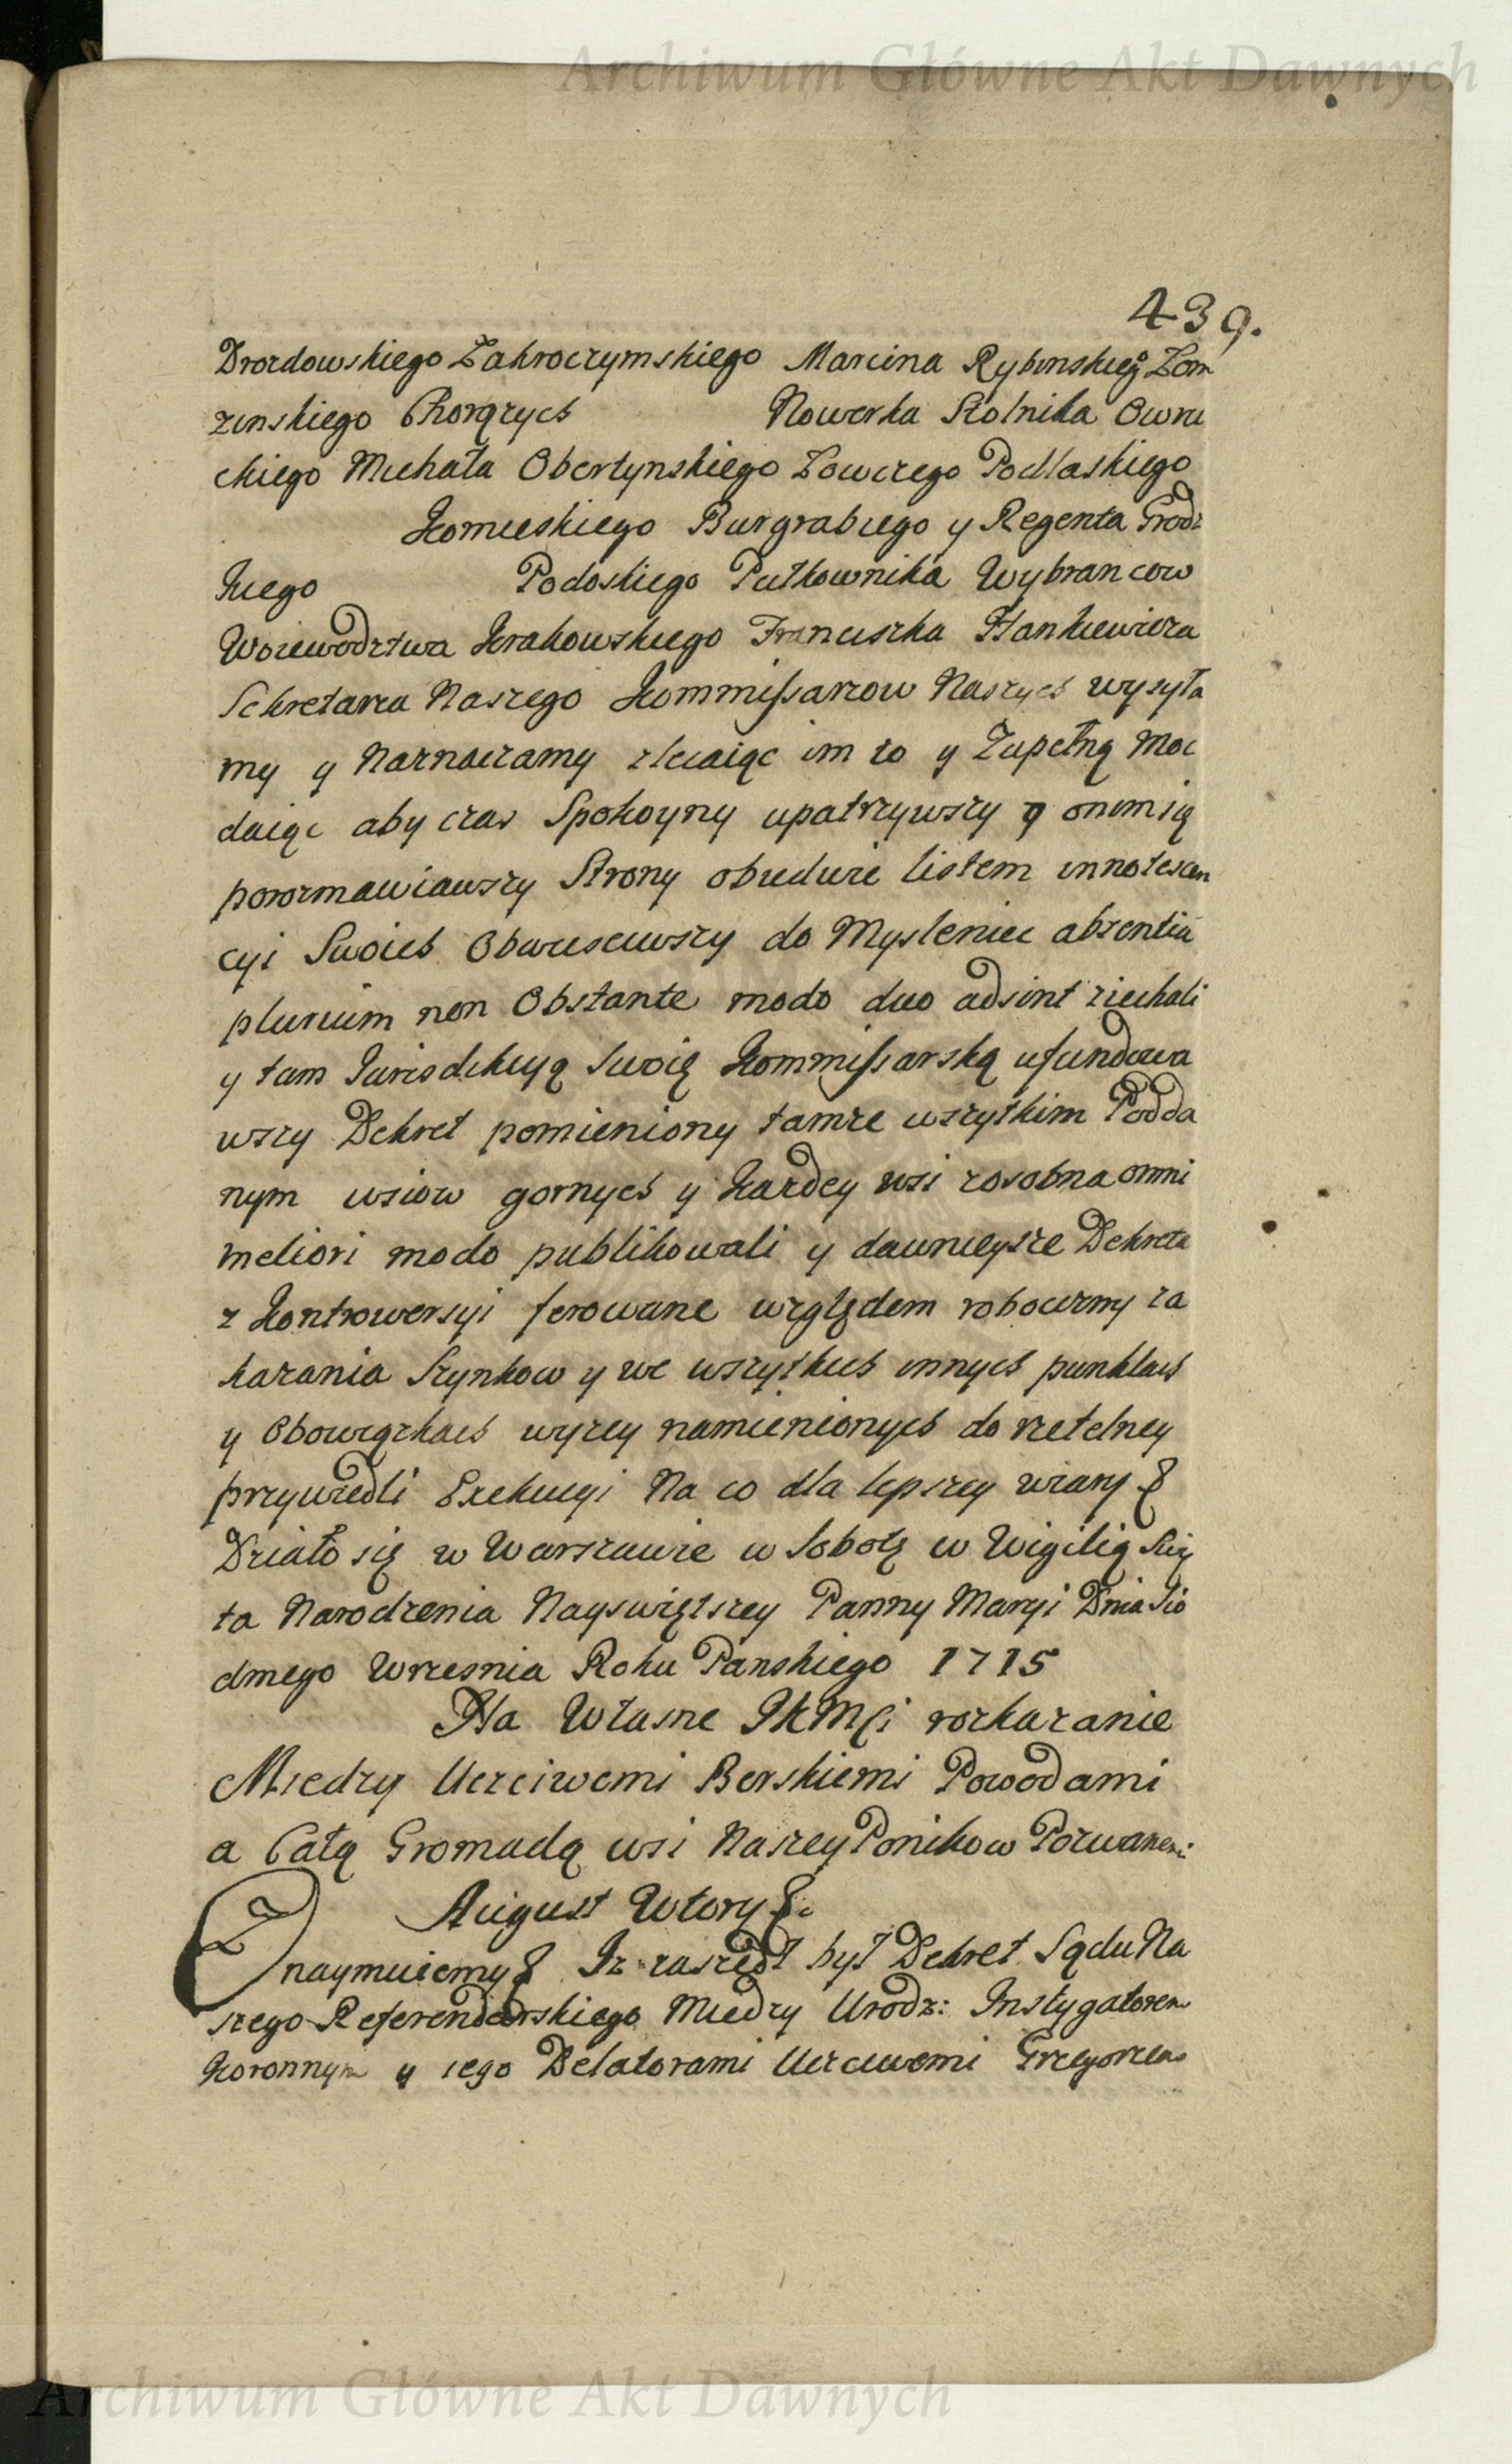 Archiwum Główne Akt Dawnych
439.
Drozdowskiego Zakroczymskiego Marcina Rybinskieg° Łom
zinskiego Chorązych Nowerka Stolnika Owru
ckiego Michała Obertynskiego Łowczego Podlaskiego
Komieskiego Burgrabiego y Regenta Grodz
kiego Podoskiego Pułkownika Wybrancow
Woiewodztwa Krakowskiego Franciszka Stankiewicza
Sekretarza Naszego Kommissarzow Naszych wysyła
my y Naznaczamy zlecaiąc im to y Zupełną Moc
daiąc aby czas Spokoyny upatrzywszy y onemią
porozmawiawszy Strony obiedwie listem innotescen
cyi Swoich Obwiesciwszy do Myslenic absentia
plurium non Obstante modo duo adsint ziechali
y tam Jurisdikcyą Swoię Kommissarską ufundowa
wszy Dekret pomieniony tamze wszytkim Podda
nym wsiow gornych y Kazdey wsi zosobna omni
meliori modo publikowali y dawnieysze Dekreta
z Kontrowersyi ferowane względem robocizny za
kazania Szynkow y we wszytkich innych punktach
y Obowiązkach wyzey namienionych do rzetelney
przywiedli Exekucyi Na co dla lepszey wiary &
Działo się w Warszawie w Sobotę w Wigilią Swię
ta Narodzenia Nayswiętszey Panny Maryi Dnia Sio
dmego Wrzesnia Roku Panskiego 1715
Na Własne JKMCi rozkazanie
Miedzy Uczciwemi Berskiemi Powodami
a Całą Gromadą wsi Naszey Ponikow Pozwanemi
August Wtory &.
Znaymuiemy & Iz zaszedł był Dekret Sądu Na
szego Referendarskiego Miedzy Urodz: Instygatorem
Koronnym y iego Delatorami Uczciwemi Grzegorzem
Archiwum Główne Akt Dawnych